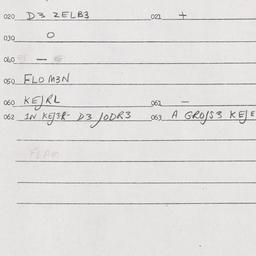 020 D3 ZELB3 021 +
030 O
040 —
050 FLOM3N
060 KEʃRL 061 —
062 IN KEʃ3R- D3 ʃODR3 063 A GROʃS3 KEʃE